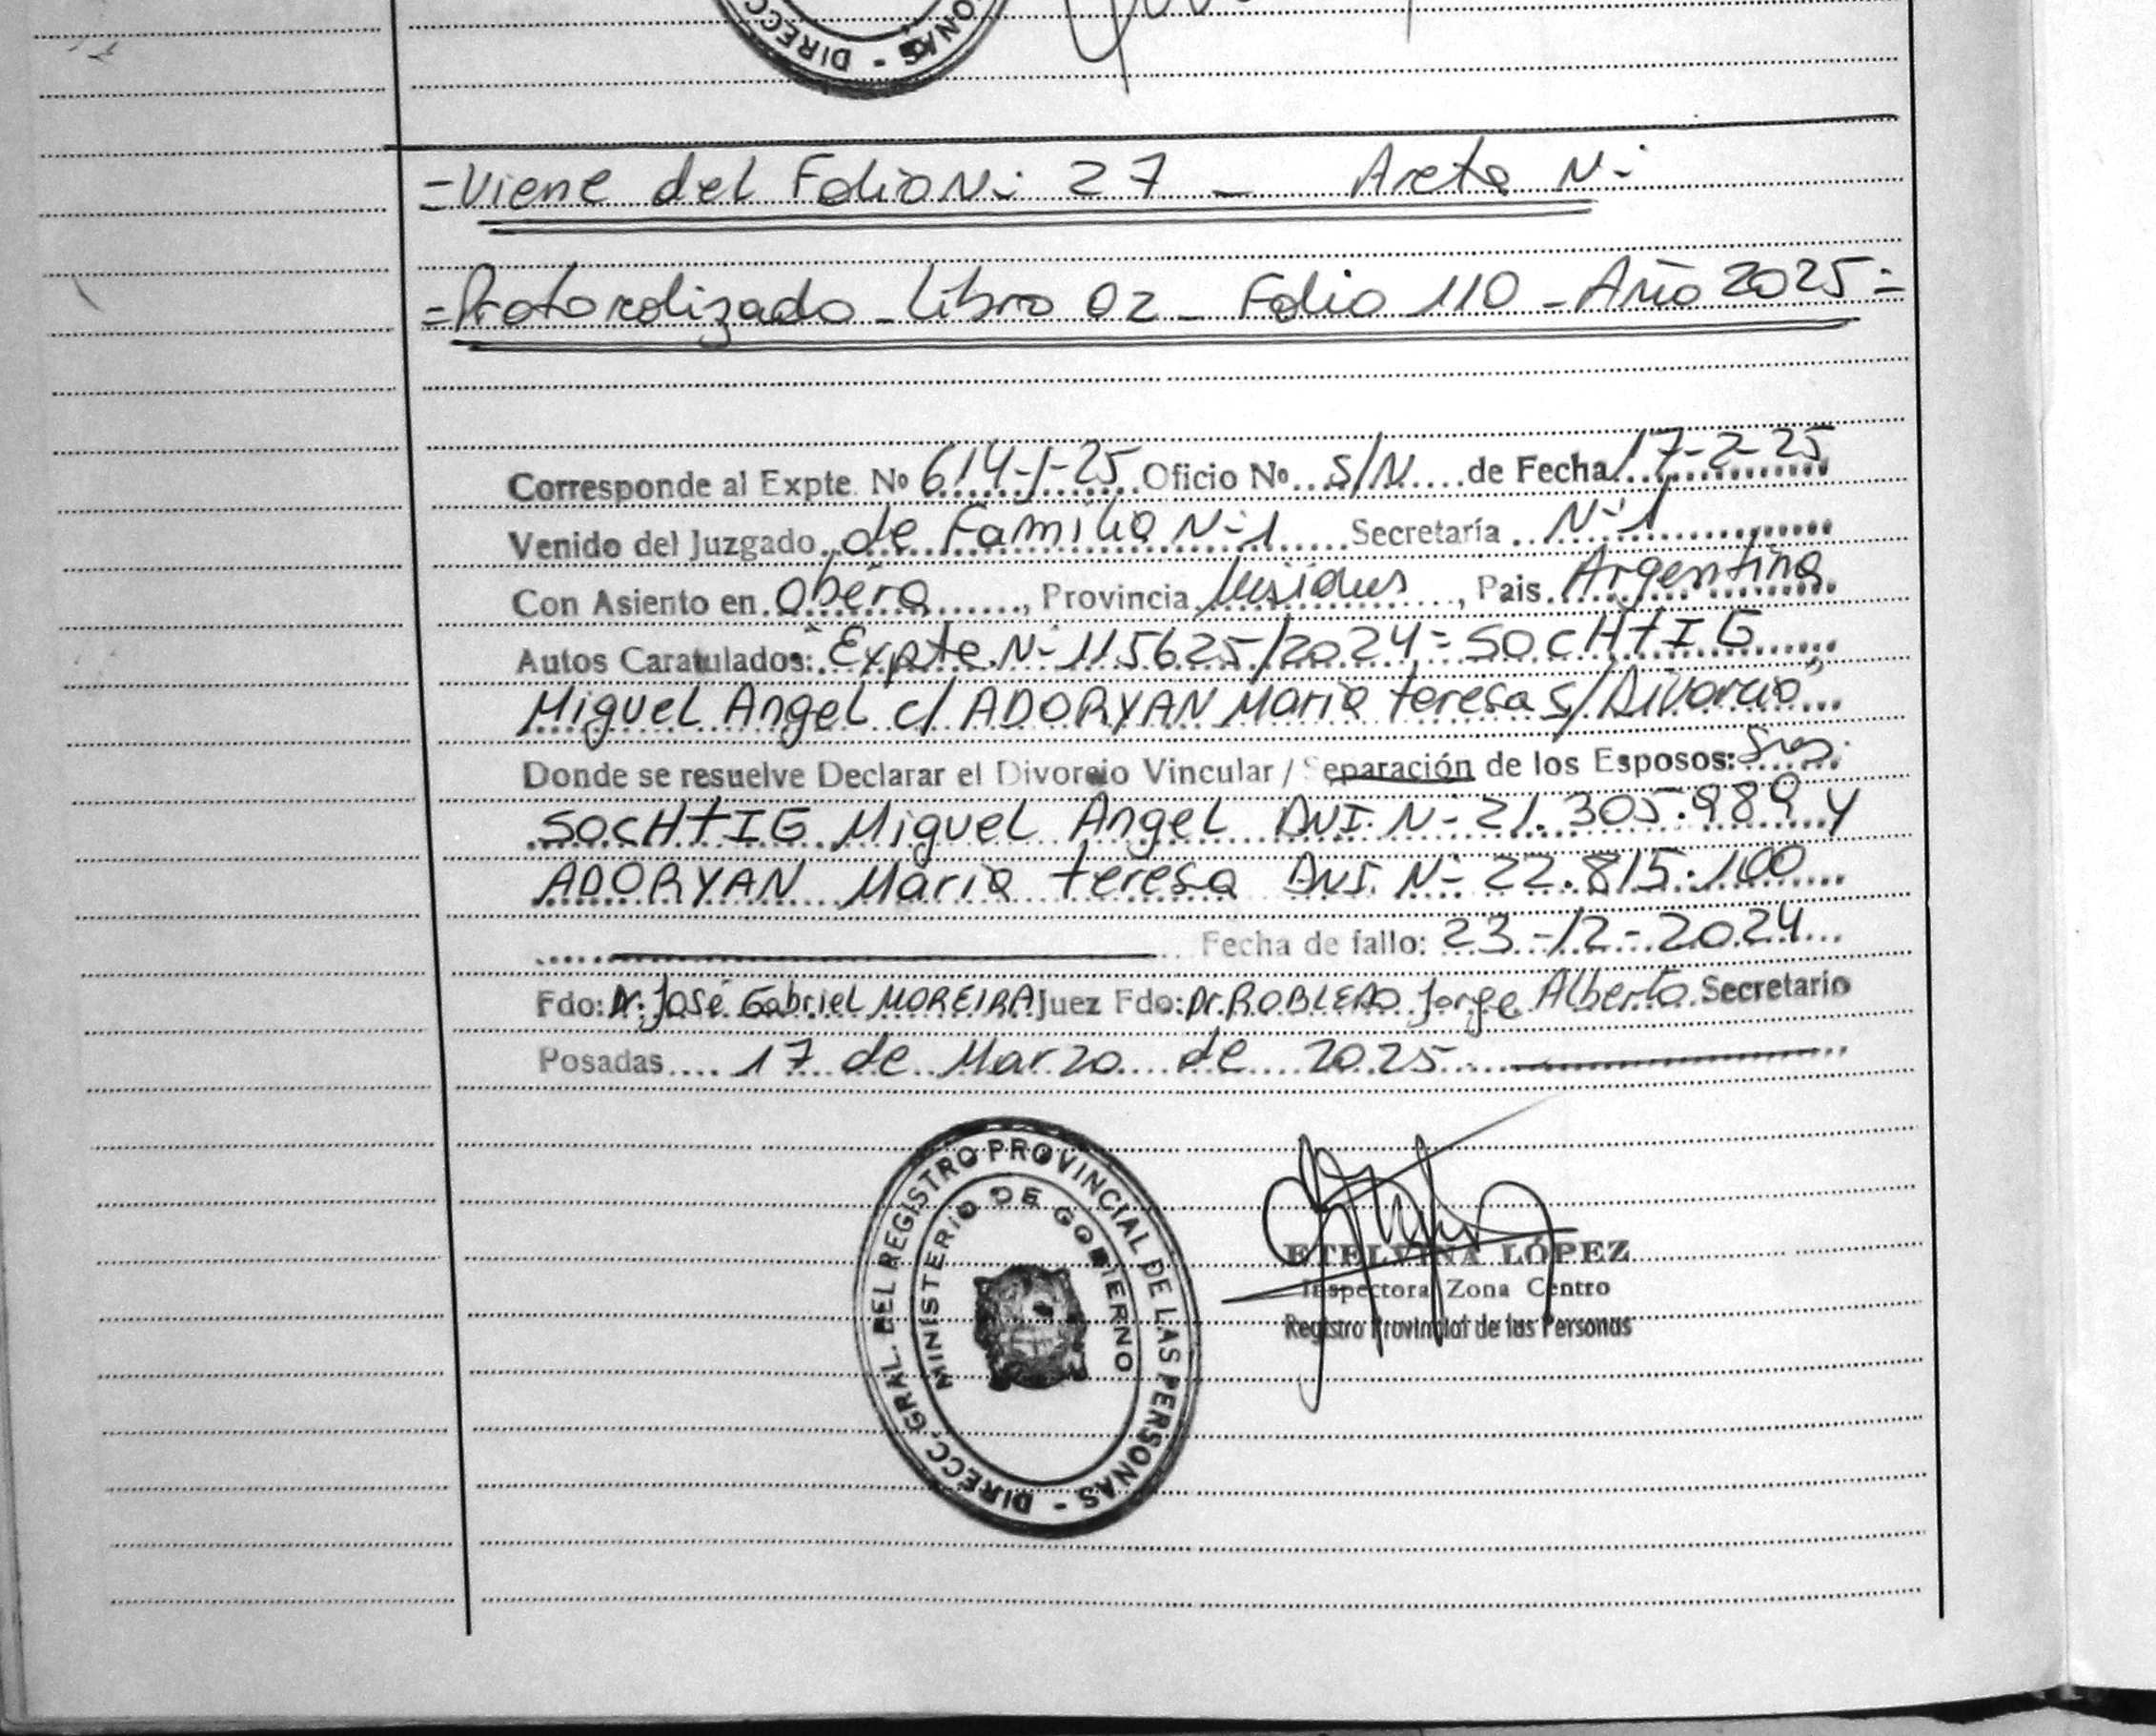 DIRECC ONAS - DIREC
=Viene del Folio Nº 27 - Acta Nº
=Protocolizado - Libro 02 - Folio 110 - Año 2025=
Corresponde al Expte. Nº 614-J-25 Oficio Nº S/N de Fecha 17-2-25
Venido del Juzgado de Familia Nº 1 Secretaría Nº 1
Con Asiento en Oberá, Provincia Misiones, Pais Argentina
Autos Caratulados: "Expte. Nº 115625/2024= SOCHTIG
Miguel Angel c/ ADORYAN Maria Teresa s/Divorcio"
Donde se resuelve Declarar el Divorcio Vincular / Separación de los Esposos: Sres.
SOCHTIG Miguel Angel DNI. Nº 21.305.989 y
ADORYAN Maria Teresa DNI. Nº 22.815.100
Fecha de fallo: 23-12-2024
Fdo: Dr. José Gabriel MOREIRA Juez Fdo: Dr. ROBLEDO Jorge Alberto Secretario
Posadas 17 de Marzo de 2025
DIRECC. GRAL. DEL REGISTRO PROVINCIAL DE LAS PERSONAS -
MINISTERIO DE GOBIERNO
ETELVINA LÓPEZ
Inspectora Zona Centro
Registro Provincial de las Personas